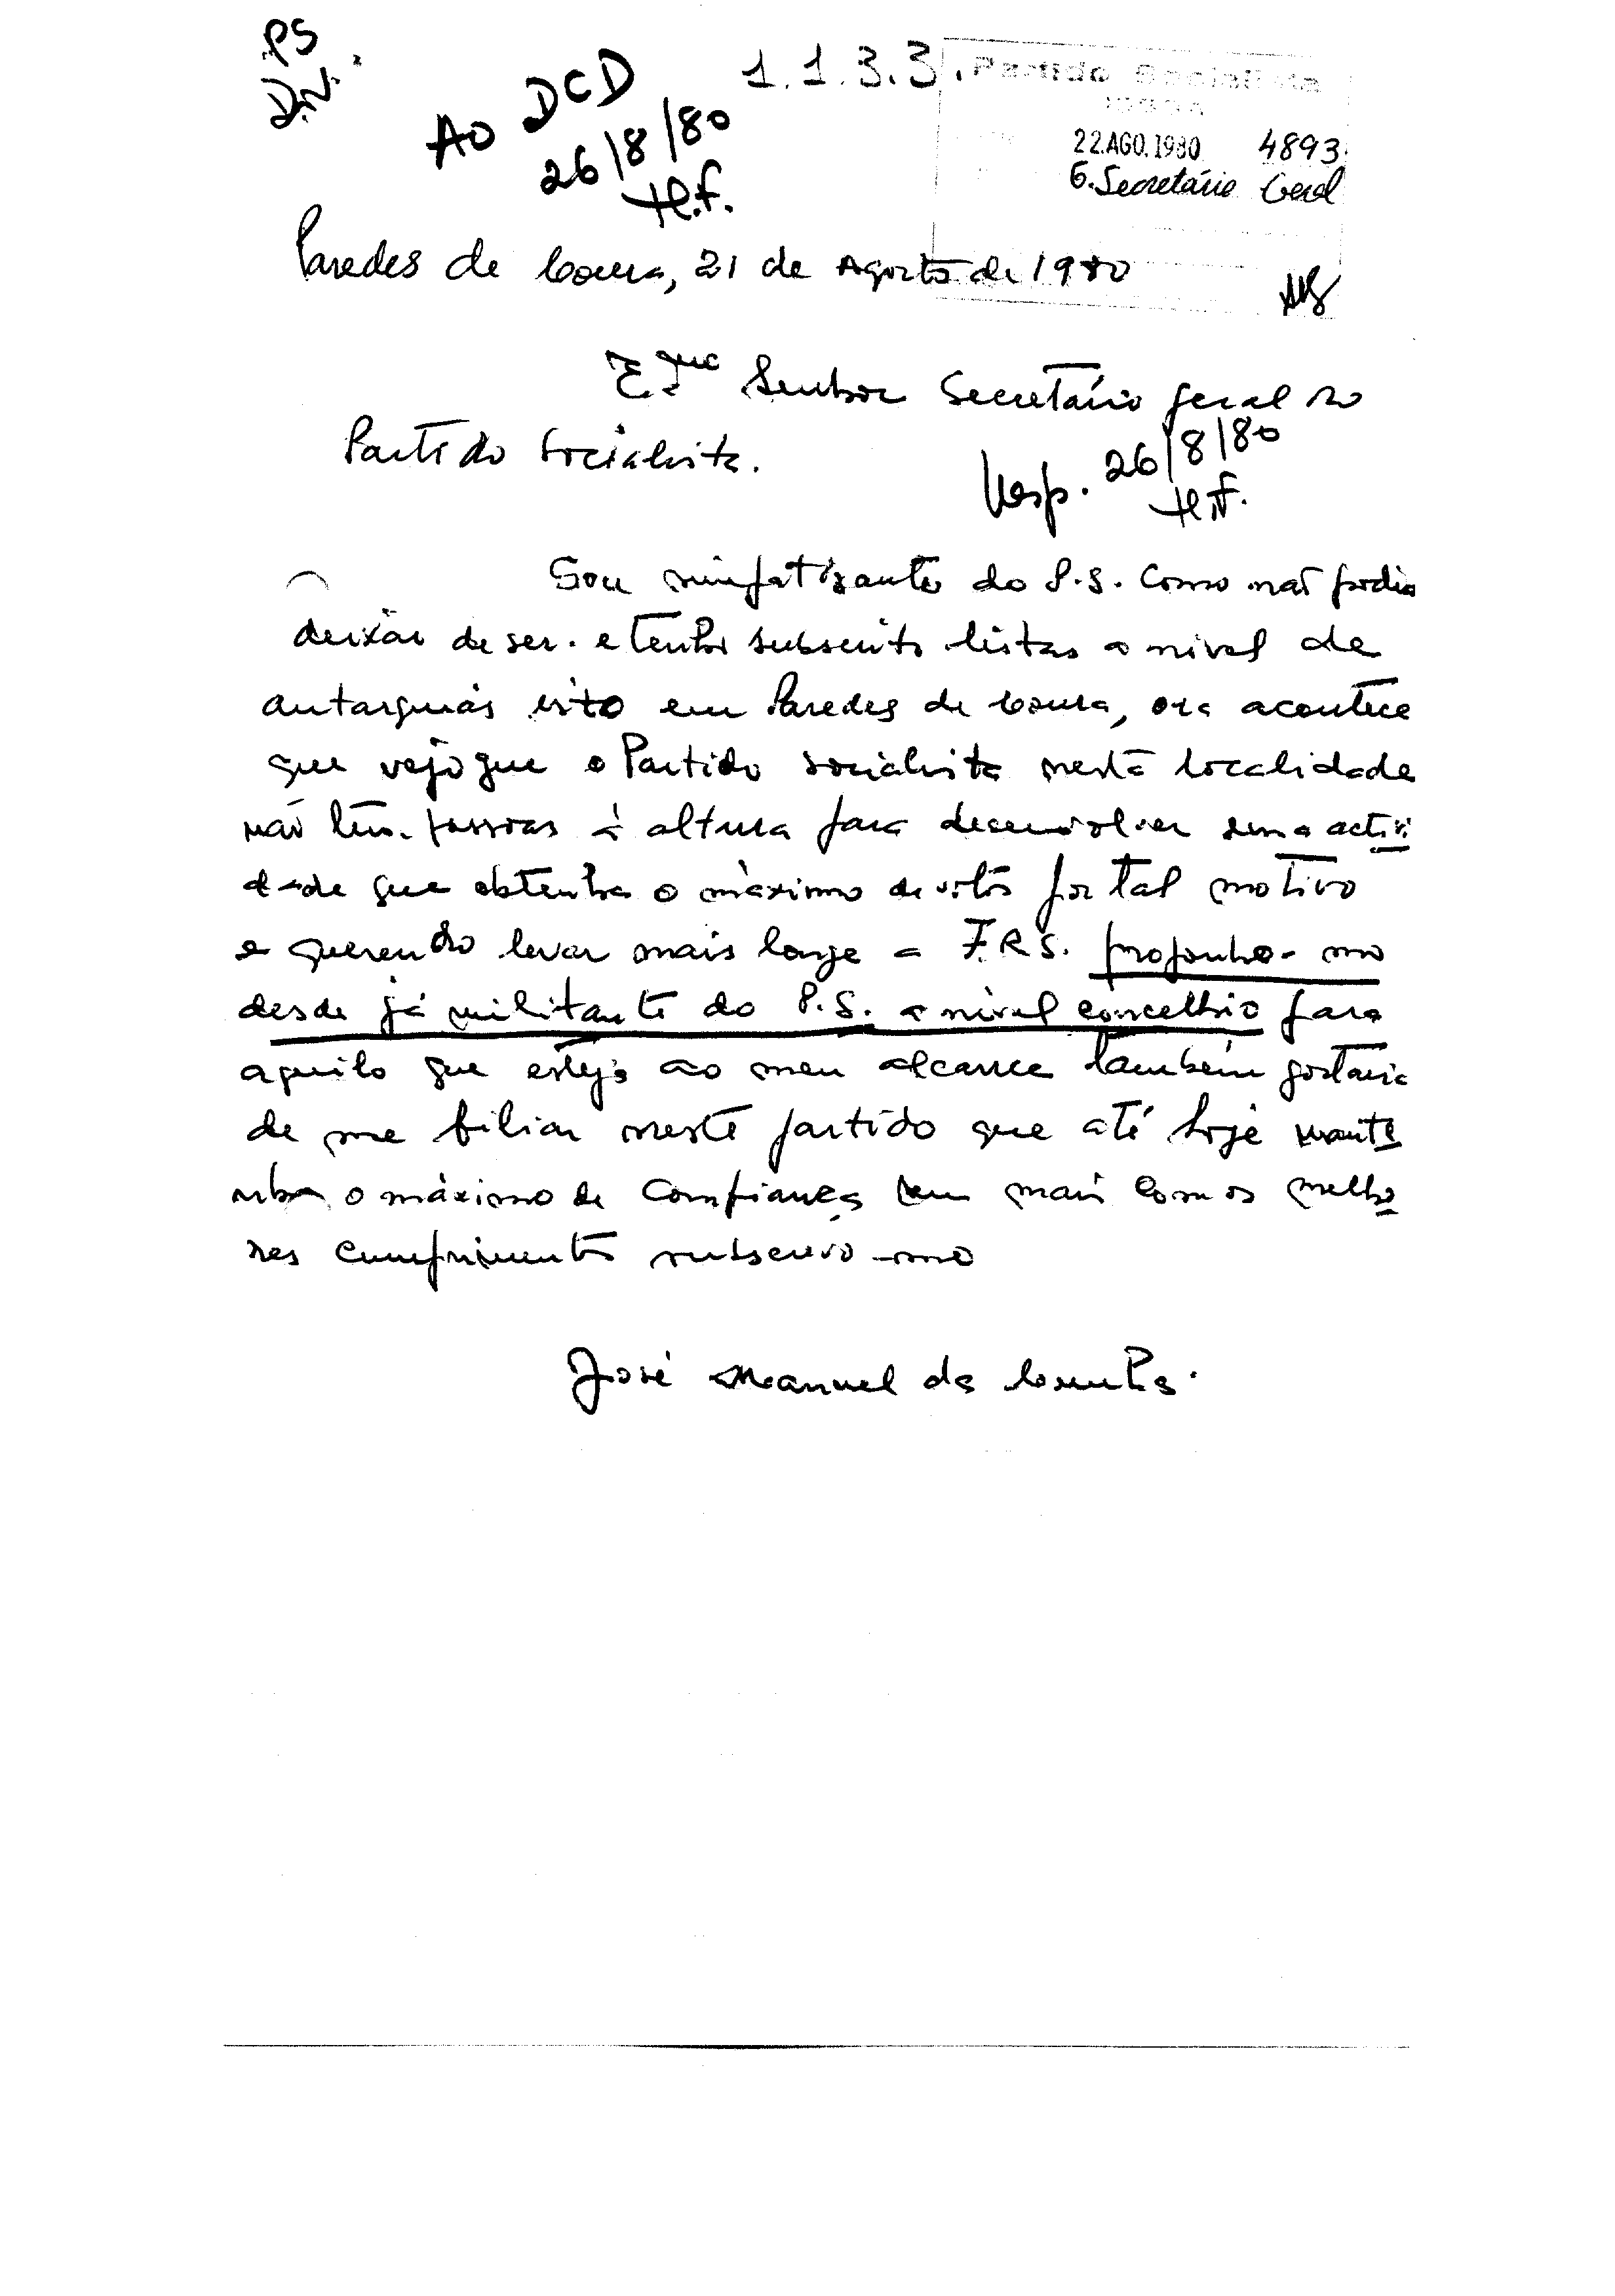 PS
Div.
Ao DCD
26/8/80
H.F.
1.1.3.3.
Partido Socialista
22.AGO.1980 4893
G. Secretário Geral
Paredes de Coura, 21 de Agosto de 1980
Senhor Secretário geral do
Partido Socialista.
Resp. 26/8/80
H.F.
Sou simpatizante do P.S. como não podia
deixar de ser. e tenho subscrito listas a nivel de
autarquias isto em Paredes de Coura, ora acontece
que vejo que o Partido socialista nesta localidade
não tem pessoas à altura para desenvolver uma activi
dade que obtenha o máximo de votos por tal motivo
e querendo levar mais longe a F.R.S. proponho-me
desde já militante do P.S. a nível concelhio para
aquilo que esteja ao meu alcance também gostaria
de me filiar neste partido que até hoje mante
nho o máximo de confiança sem mais com os melho
res cumprimentos subscrevo-me
José Manuel da Cunha.